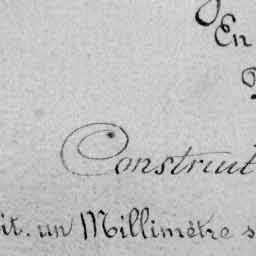 En
Construit
it. un Millimètre s